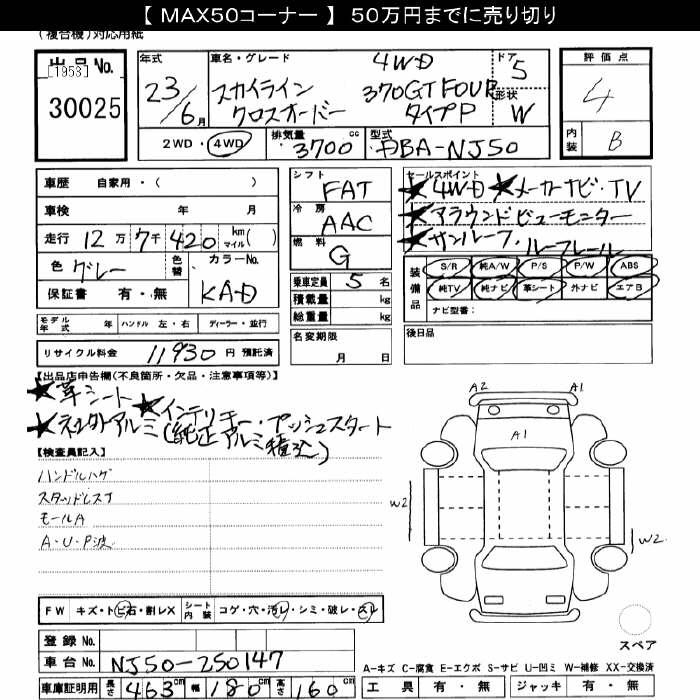 【 MAX50コーナー 】 50万円までに売り切り
(複合機)対応用紙
出品No. [1953] 30025
年式 23/6月
車名・グレード スカイライン クロスオーバー 4WD 370GT FOUR タイプP
ドア 5
形状 W
評価点 4
内装 B
2WD・4WD
排気量 3700 cc
型式 DBA-NJ50
車歴 自家用・( )
車検 年 月
走行 12万7千420 km マイル( )
色 グレー 色替 カラーNo. KAD
保証書 有・無
シフト FAT
冷房 AAC
燃料 G
乗車定員 5 名
積載量 kg
総重量 kg
セールスポイント
★4WD ★メーカーナビ・TV
★アラウンドビューモニター
★サンルーフ・ルーフレール
装備品 S/R 純A/W P/S P/W ABS
純TV 純ナビ 革シート 外ナビ エアB
ナビ型番:
モデル年式 年 ハンドル 左・右 ディーラー・並行
名変期限 月 日
後日品
リサイクル料金 11930 円 預託済
【出品店申告欄(不良箇所・欠品・注意事項等)】
★革シート ★インテリキー・プッシュスタート
★ネオクラアルミ(純正アルミ積込)
【検査員記入】
ハンドルハゲ
スタッドレス
モールA
A・U・P波
A2 A1
A1
W2
W2
FW キズ・トビ石・割レX シート内装 コゲ・穴・汚レ・シミ・破レ・スレ
登録No.
車台No. NJ50-250147
スペア
A-キズ C-腐食 E-エクボ S-サビ U-凹ミ W-補修 XX-交換済
車庫証明用 長さ 463cm 幅 180cm 高さ 160cm
工具 有・無 ジャッキ 有・無